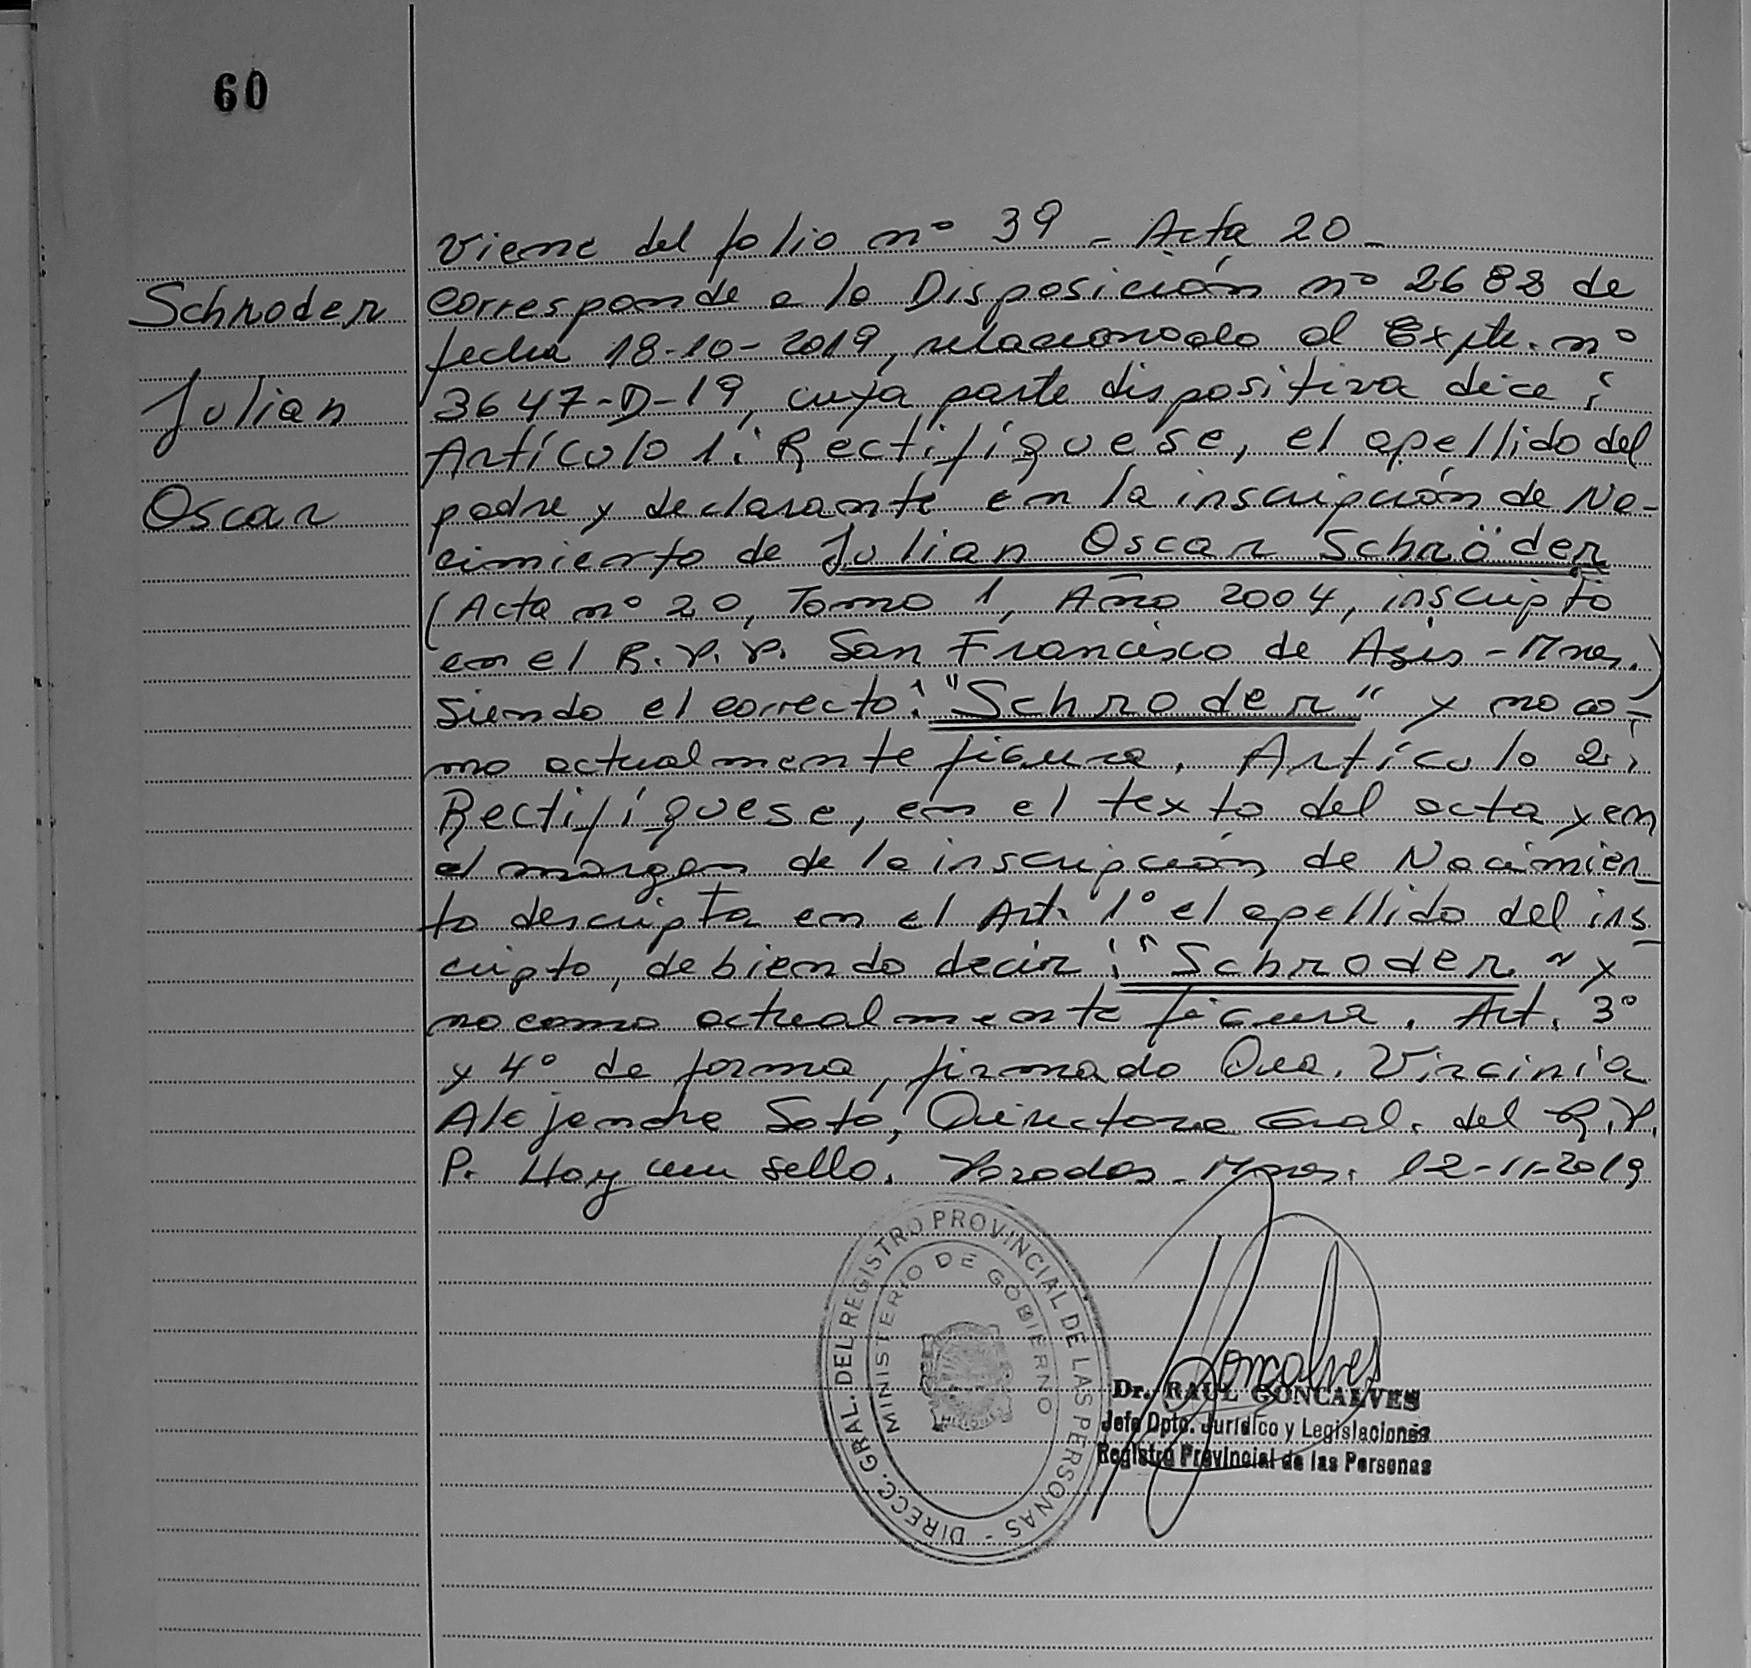 60
Viene del folio nº 39 - Acta 20 -
Schroder
Julian
Oscar
corresponde a la Disposición nº 2688 de
fecha 18-10-2019, relacionado al Expte. nº
3647-D-19, cuya parte dispositiva dice:
Artículo 1: Rectifíquese, el apellido del
padre y declarante en la inscripción de Na-
cimiento de Julian Oscar Schröder
(Acta nº 20, Tomo 1, Año 2004, inscripto
en el R.P.P. San Francisco de Asis - Mnes.)
siendo el correcto: "Schroder" y no co-
mo actualmente figura. Artículo 2:
Rectifíquese, en el texto del acta y en
el margen de la inscripción de Nacimien-
to descripta en el Art. 1º el apellido del ins-
cripto, debiendo decir: "Schroder" y
no como actualmente figura. Art. 3º
y 4º de forma, firmado Dra. Virginia
Alejandra Soto, Directora Gral. del R.P.
P. Hay un sello. Posadas - Mnes. 12-11-2019
DIRECC. GRAL. DEL REGISTRO PROVINCIAL DE LAS PERSONAS -
MINISTERIO DE GOBIERNO
Goncalves
Dr. RAUL GONCALVES
Jefe Dpto. Jurídico y Legislaciones
Registro Provincial de las Personas